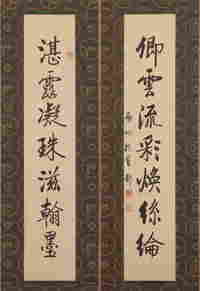 卿雲流彩煥絲綸
湛露凝珠滋翰墨